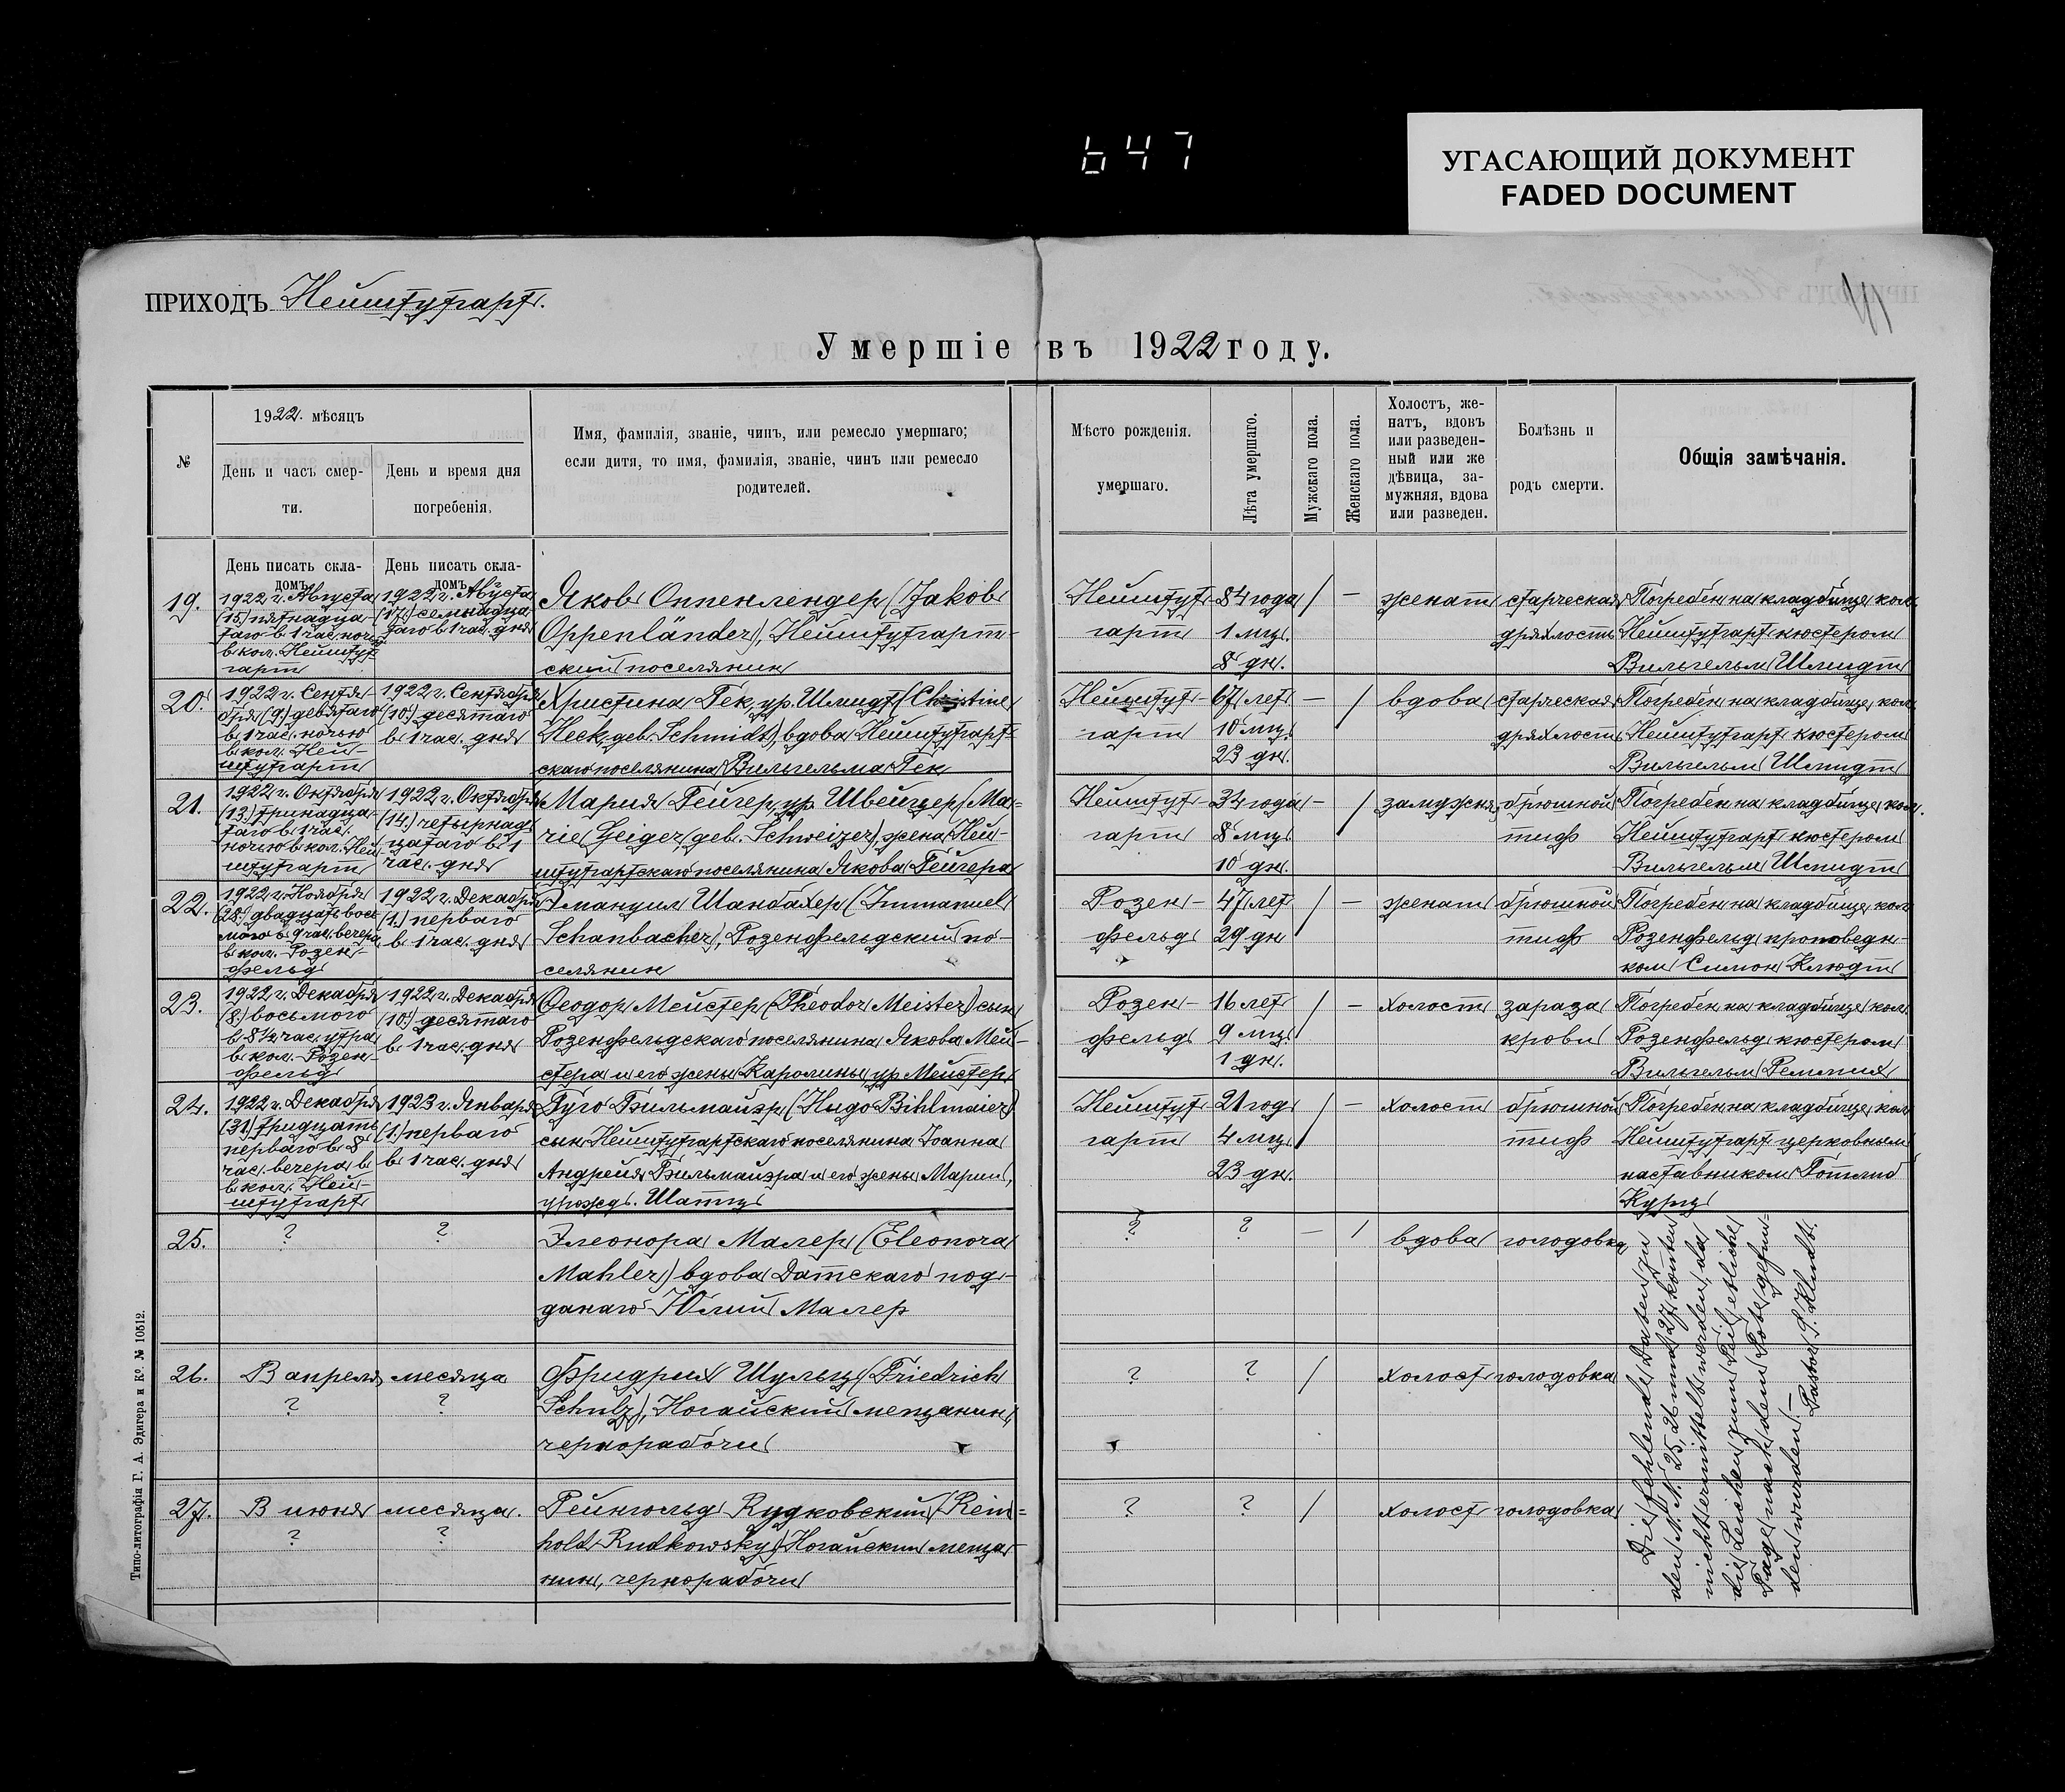 647
УГАСАЮЩИЙ ДОКУМЕНТ
FADED DOCUMENT
ПРИХОДЪ Нейштутгарт.
Умершіе въ 1922 году.
№
1922. мѣсяцъ
День и часъ смер-
ти.
День и время дня
погребенія,
Имя, фамилія, званіе, чинъ, или ремесло умершаго;
если дитя, то имя, фамилія, званіе, чинъ или ремесло
родителей.
Мѣсто рожденія.
умершаго.
Лѣта умершаго.
Мужскаго пола.
Женскаго пола.
Холостъ, же-
натъ, вдовъ
или разведен-
ный или же
дѣвица, за-
мужняя, вдова
или разведен.
Болѣзнь и
родъ смерти.
Общія замѣчанія.
День писать скла-
домъ
День писать скла-
домъ
19.
1922 г. Августа
(15) пятнадца-
таго в 1 час. ночи
в кол. Нейштут-
гарт
1922 г. Августа
(17) семнадца-
таго в 1 час. дня
Яков Оппенлендер (Jakob
Oppenländer), Нейштутгарт-
ский поселянин
Нейштут-
гарт
84 года
1 мц.
8 дн.
/
–
женат
старческая
дряхлость
Погребен на кладбище кол.
Нейштутгарт кюстером
Вильгельм Шмидт
20.
1922 г. Сентя-
бря (9.) девятаго
в 1 час. ночью
в кол. Ней-
штутгарт
1922 г. Сентября
(10.) десятаго
в 1 час. дня
Христина Гек, ур. Шмидт (Christine
Heck, geb. Schmidt), вдова Нейштутгарт-
скаго поселянина Вильгельма Гек
Нейштут-
гарт
67 лет
10 мц.
23 дн.
–
/
вдова
старческая
дряхлость
Погребен на кладбище кол.
Нейштутгарт кюстером
Вильгельм Шмидт
21.
1922 г. Октября
(13.) тринадца-
таго в 1 час.
ночью в кол. Ней-
штутгарт
1922 г. Октября
(14.) четырнад-
цатаго в 1
час. дня
Мария Гейгер, ур. Швейцер (Ma-
rie Geiger, geb. Schweizer), жена Ней-
штутгартскаго поселянина Якова Гейгера
Нейштут-
гарт
34 года
8 мц.
10 дн.
–
/
замужня
брюшной
тиф
Погребен на кладбище кол.
Нейштутгарт кюстером
Вильгельм Шмидт
22.
1922 г. Ноября
(28.) двадцать вось-
маго в 9 час. вечера
в кол. Розен-
фельд
1922 г. Декабря
(1.) перваго
в 1 час. дня
Эмануил Шанбахер (Immanuel
Schanbacher), Розенфельдский по-
селянин
Розен-
фельд
47 лет
29 дн
/
–
женат
брюшной
тиф
Погребен на кладбище кол.
Розенфельд проповедн-
ком Симон Клюдт
23.
1922 г. Декабря
(8.) восьмого
в 8½ час. утра
в кол. Розен-
фельд
1922 г. Декабря
(10.) десятаго
в 1 час. дня
Феодор Мейстер (Theodor Meister) сын
Розенфельдскаго поселянина Якова Мей-
стера и его жены Каролины, ур. Мейстер
Розен-
фельд
16 лет
9 мц.
1 дн.
/
–
холост
зараза
крови
Погребен на кладбище кол.
Розенфельд кюстером
Вильгельм
24.
1922 г. Декабря
(31.) тридцать
перваго в 8
час. вечера в
в кол. Ней-
штутгарт
1923 г. Января
(1.) перваго
в 1 час. дня
Гуго Бильмайэр (Hugo Bihlmaier)
сын Нейштутгартскаго поселянина Иоанна
Андрея Бильмайэра и его жены Марии,
урожд. Шатц
Нейштут-
гарт
21 год
4 мц.
23 дн.
/
–
холост
брюшной
тиф
Погребен на кладбище кол.
Нейштутгарт церковным
наставником Готлиб
Курц
25.
?
?
Элеонора Малер (Eleonora
Mahler) вдова Датскаго под-
данаго Юлий Малер
?
?
–
/
вдова
голодовка
26.
В апреля месяца
?
?
Фридрих Шульц (Friedrich
Schulz), Ногайский мещанин,
чернорабочи
?
?
/
холост
голодовка
27.
В июня месяца.
?
?
Рейнгольд Рудковский (Rein-
hold Rudkowsky) Ногайским меща-
нин, чернорабочи
?
?
/
холост
голодовка
Die fehlende Daten zu
den N. N. 25, 26 und 27 konten
nicht ermittelt werden, da
die Leichen zum Teil etliche
Tage nach dem Tode gefun-
den wurden.–
Pastor S. Kludt.
Типо-литографія Г. А. Эдигера и Ко. № 10512.